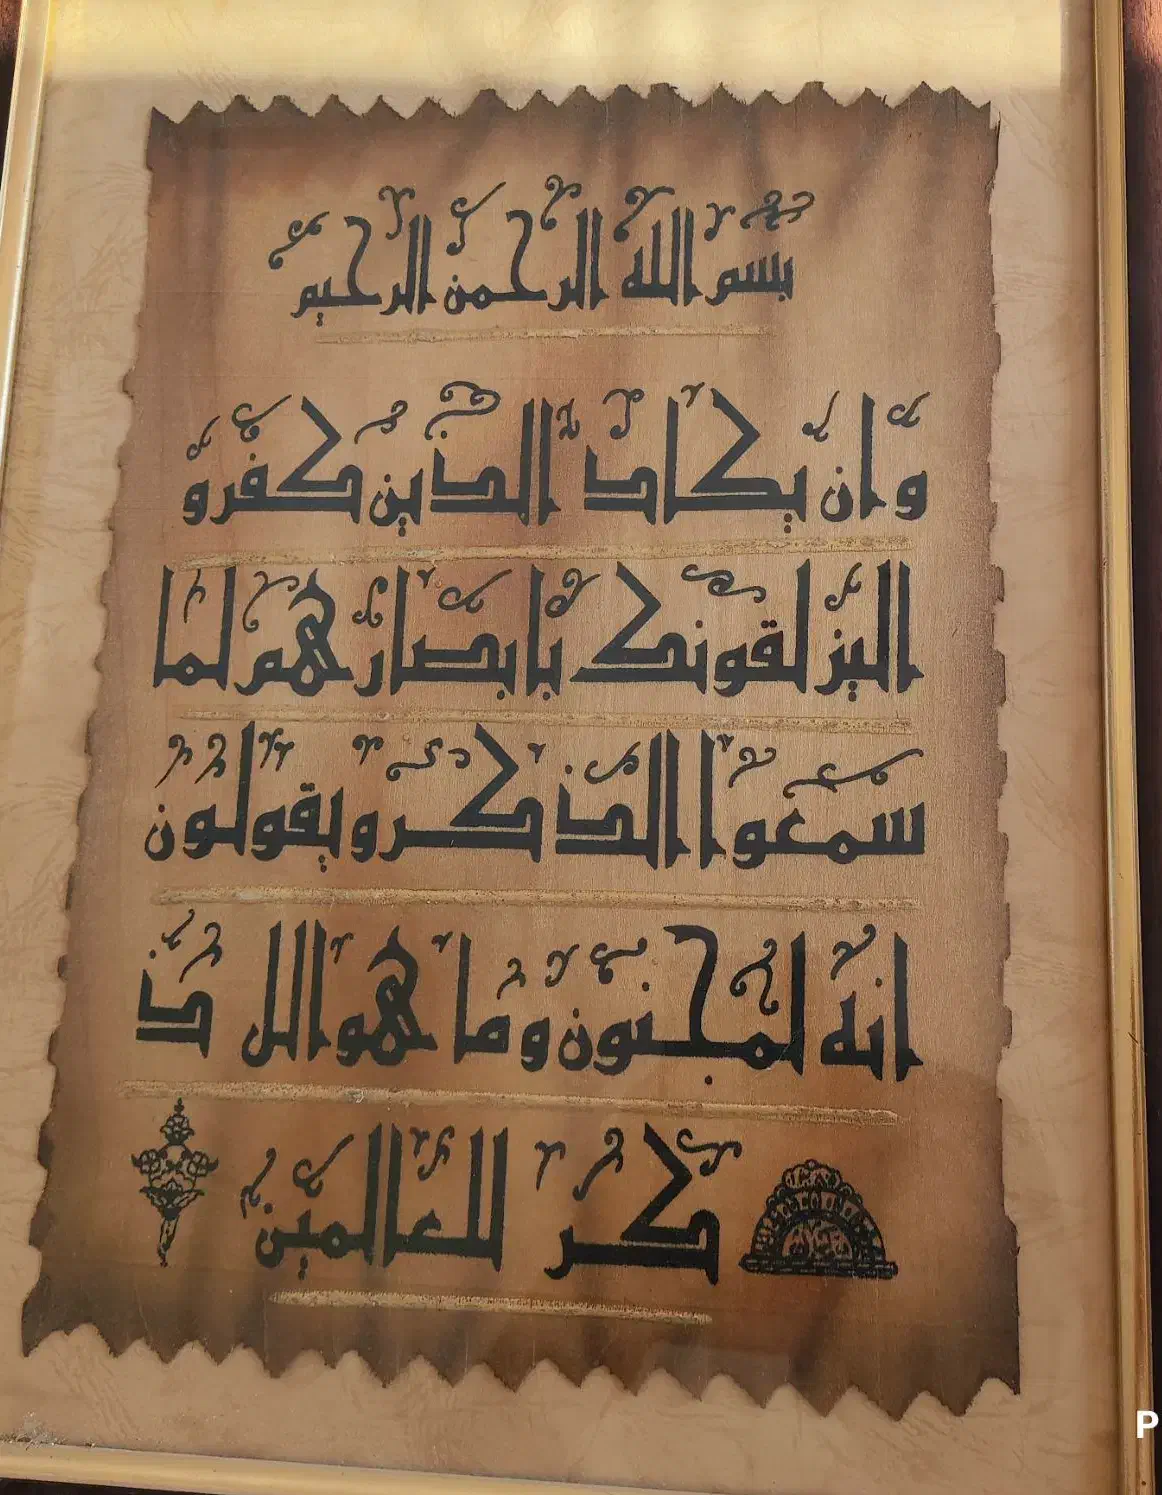 بسم الله الرحمن الرحيم
وان يكاد الذين كفرو
اليزلقونك بابصارهم لما
سمعوا الذكر و يقولون
انه لمجنون وما هو الل ذ
كر للعالمين
P